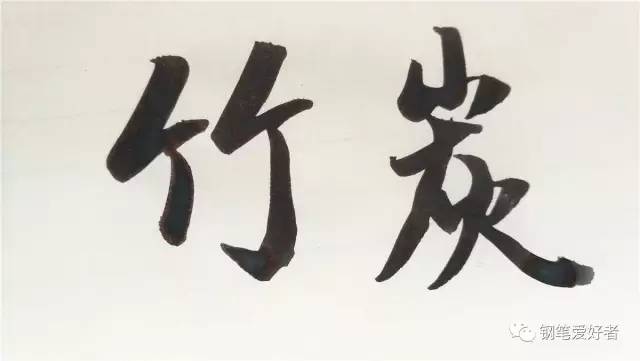 竹炭
钢笔爱好者